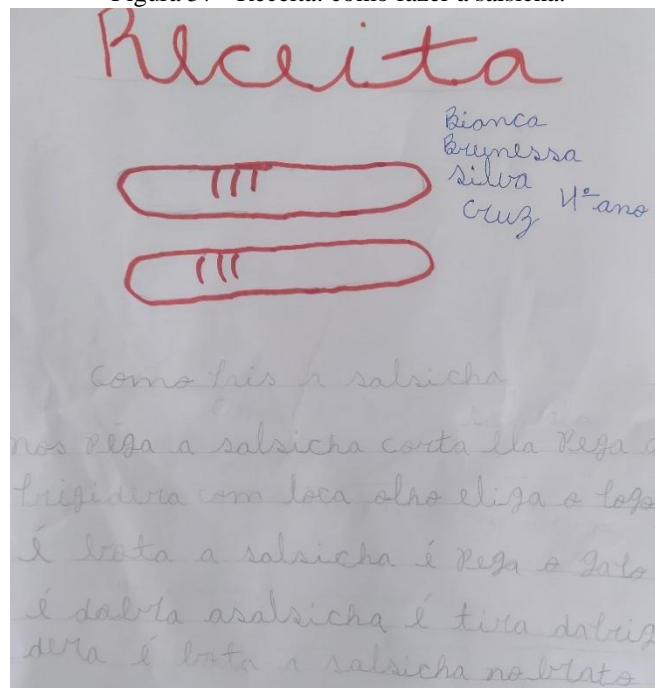 Figura 37 - Receita: como fazer a salsicha.
Receita
Bianca
Brynessa
Silva
Cruz 4º ano
como fris a salsicha
nos pega a salsicha corta ella pega a
frigidera com loca olho eliga o fogo
é bota a salsicha é pega o garo
é dabrta asalsicha é tira dabrig
dera é bota a salsicha no brato